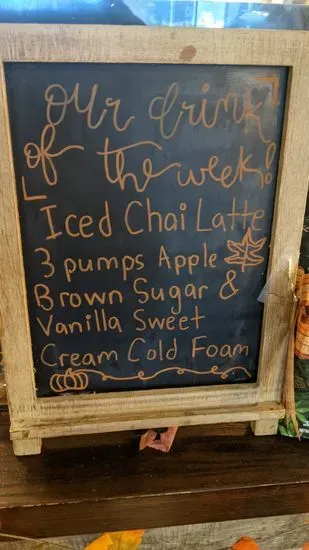 our drink
of the week!
Iced Chai Latte
3 pumps Apple
Brown Sugar &
Vanilla Sweet
Cream Cold Foam